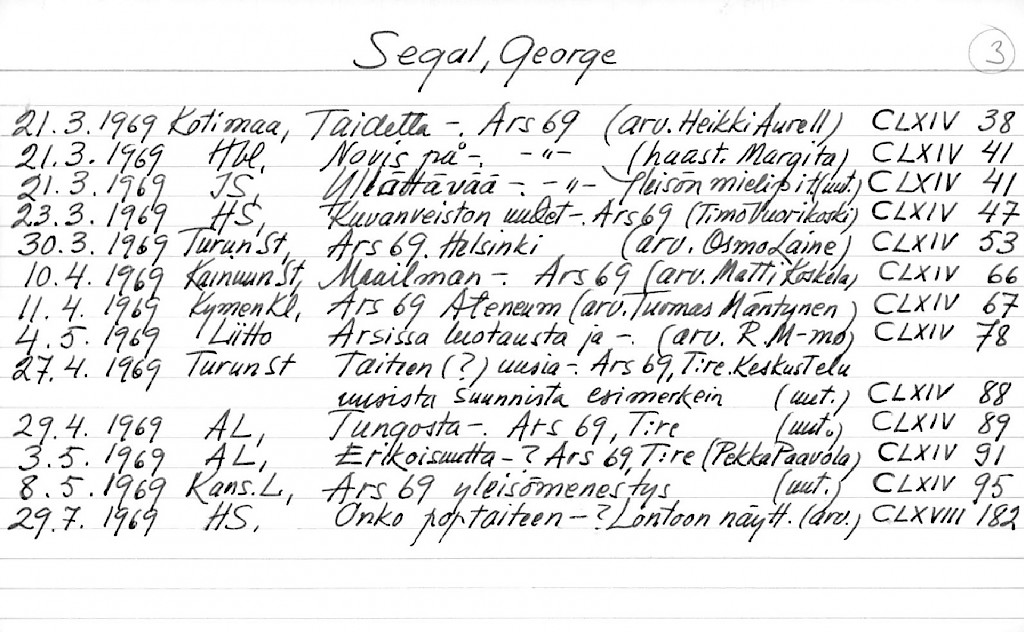 Segal, George 3
21.3.1969 Kotimaa, Taidetta -. Ars 69 (arv. Heikki Aurell) CLXIV 38
21.3.1969 Hbl, Novis på -. -"- (haast. Margita) CLXIV 41
21.3.1969 JS, Yllättävää -. -"- Yleisön mielipit (uut.) CLXIV 41
23.3.1969 HS, Kuvanveiston uudet -. Ars 69 (Timo Vuorikoski) CLXIV 47
30.3.1969 Turun St, Ars 69. Helsinki (arv. Osmo Laine) CLXIV 53
10.4.1969 Kainuun St, Maailman -. Ars 69 (arv. Matti Koskela) CLXIV 66
11.4.1969 Kymen Kl, Ars 69 Ateneum (arv. Tuomas Mäntynen) CLXIV 67
4.5.1969 Liitto Arsissa luotausta ja -. (arv. R. M-mo) CLXIV 78
27.4.1969 Turun St Taiteen (?) uusia -. Ars 69, T:re. Keskustelu
uusista suunnista esimerkein (uut.) CLXIV 88
29.4.1969 AL, Tungosta -. Ars 69, T:re (uut.) CLXIV 89
3.5.1969 AL, Erikoisuutta - ? Ars 69, T:re (Pekka Paavola) CLXIV 91
8.5.1969 Kans. L, Ars 69 yleisömenestys (uut.) CLXIV 95
29.7.1969 HS, Onko poptaiteen - ? Lontoon näytt. (arv.) CLXVIII 182